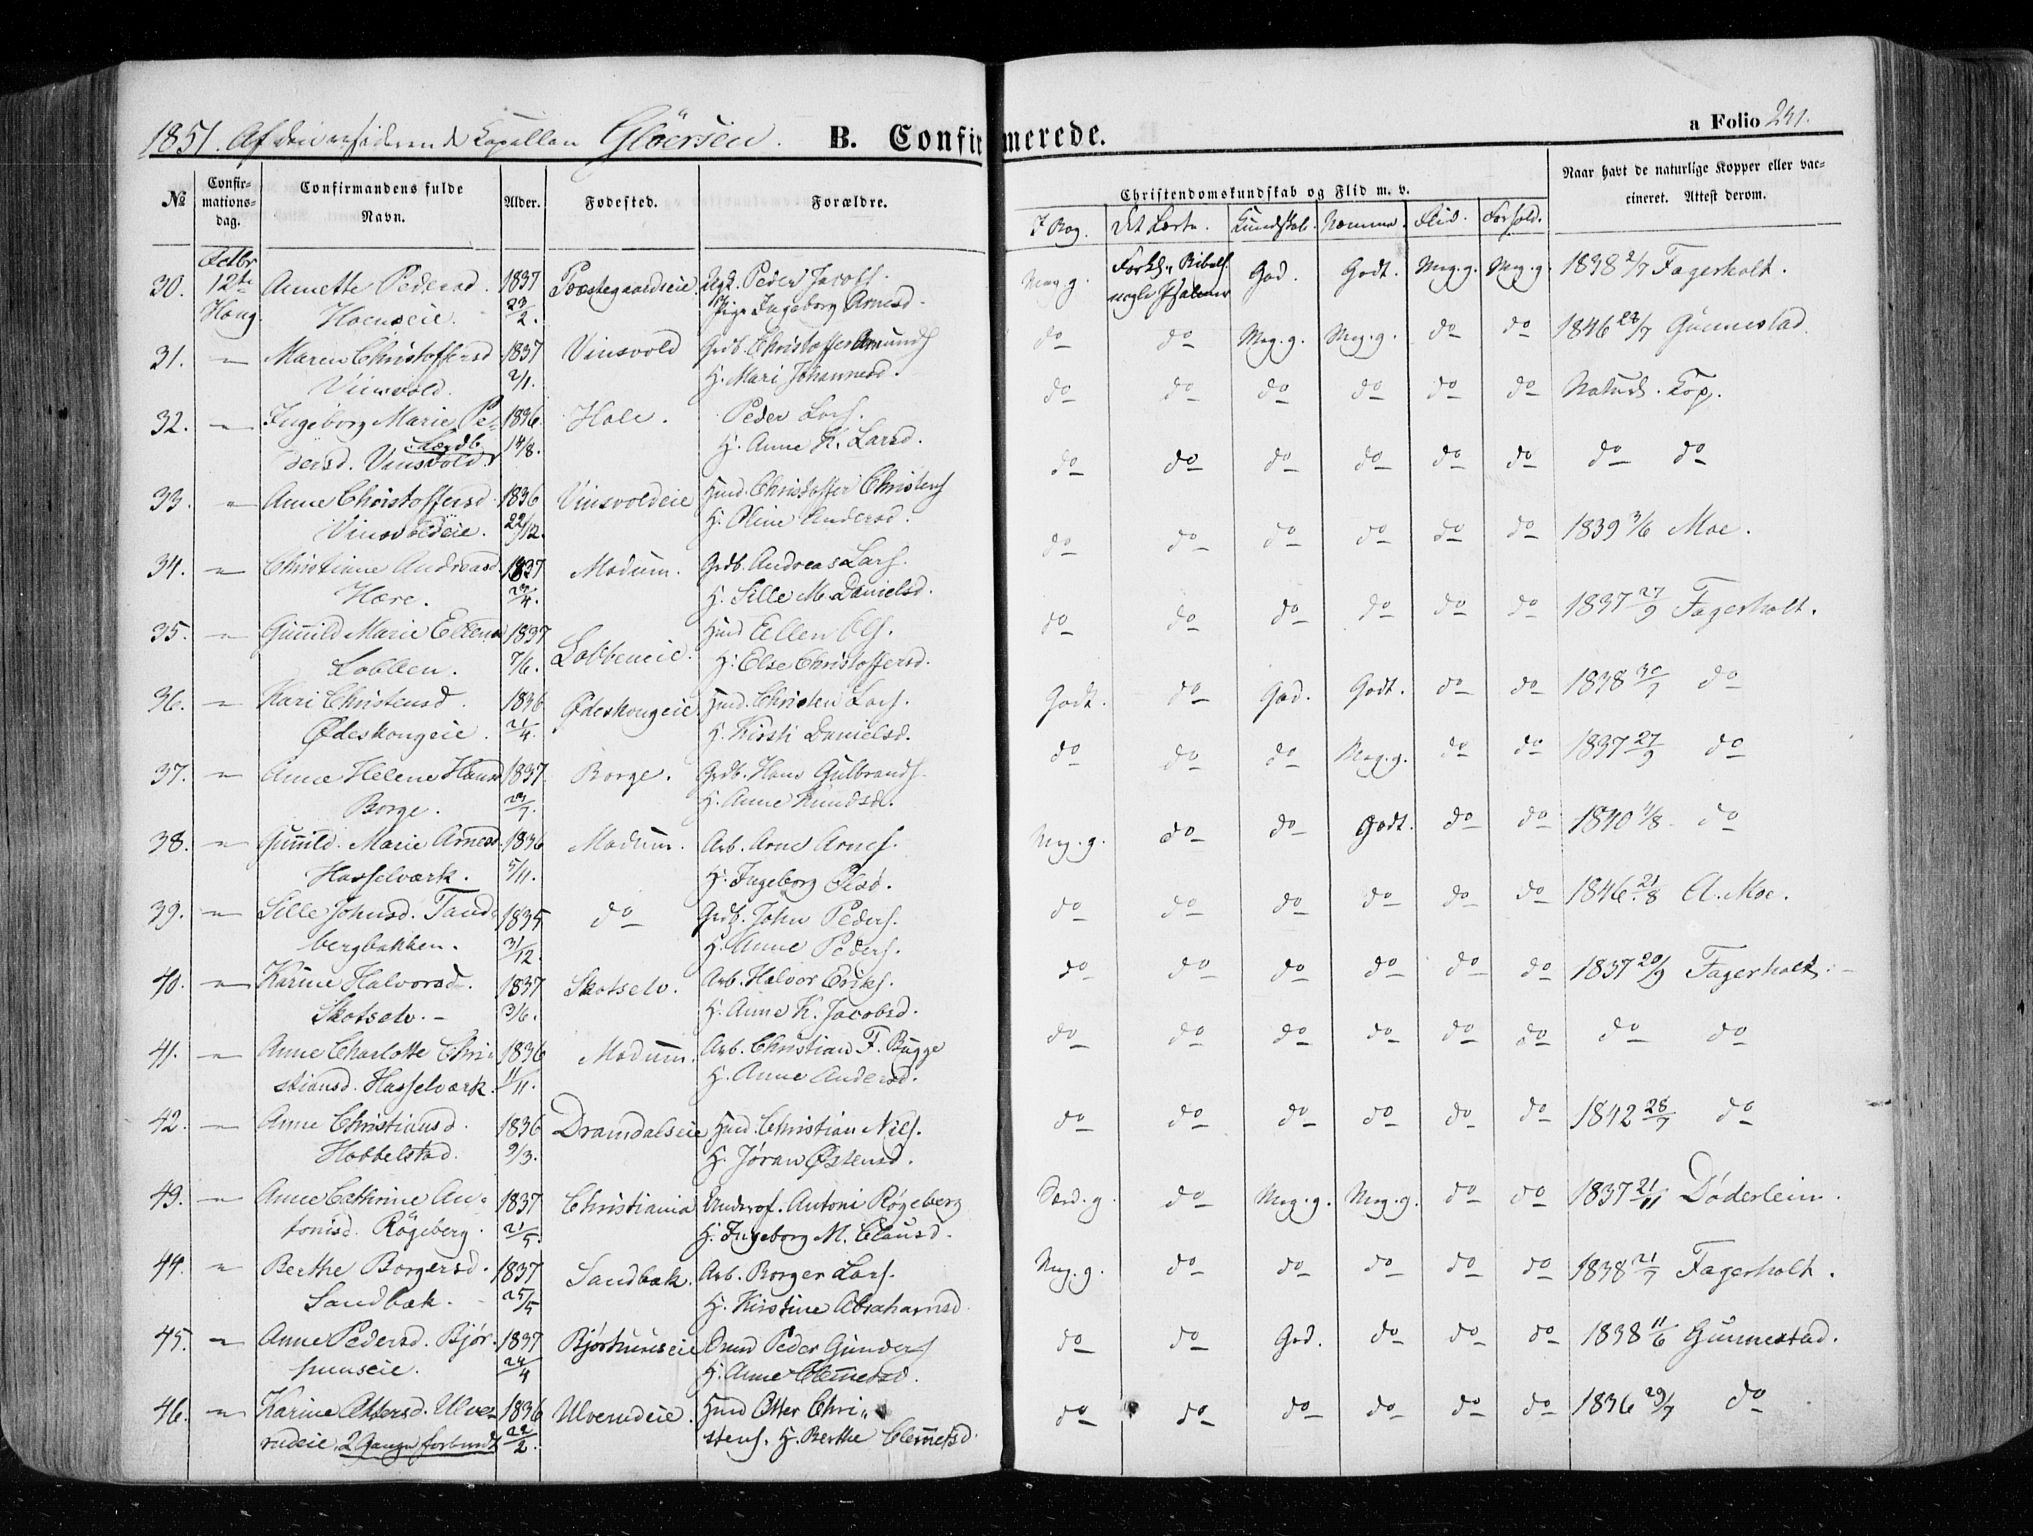 1851. Af den residerende Kapellan Gløersen. B. Confirmerede. a Folio 241.
№ Confirmationsdag. Confirmandens fulde Navn. Alder. Fødested. Forældre. Christendomskundskab og Flid m. v. Naar havt de naturlige Kopper eller vaccineret. Attest derom.
I Bog. Det Lærte. Kundskab. Nemme. Flid. Forhold.
Octbr
30. 12te Annette Pedersd. 1837 Præstegaardseie Ugk. Peder Jacobs. Meg. g. Forkl. Bibelh. God. Godt. Meg. g. Meg. g. 1838 2/7 Fagerholt.
Haug. Hoenseie. 23/2. Pige Ingeborg Arnesd. nogle Psalmer
31. " Maren Christoffersd 1837 Vinsvold Grdb. Christoffer Amunds do do Meg. g. Meg. g. do do 1846 28/7 Gunnestad.
Vinsvold. 2/1. H. Mari Johannesd.
32. " Ingeborg Marie Pe- 1836 Hole. Peder Lars. do do do do do do Naturl. Kop.
dersd. Vinsvold 14/8. H. Anne K. Larsd.
33. " Anne Christoffersd 1836 Vinsvoldeie Husd. Christoffer Christens do do do do do do do do
Vinsvoldeie. 22/12. H. Oline Andersd.
34. " Christiane Andreasd. 1837 Modum. Grdb. Andreas Lars. do do do do do do 1839 3/6 Moe.
Hære. 23/4. H. Sille M. Danielsd.
35. " Gunild Marie Ellensd 1837 Lobbeneie. Husd Ellen Ols. do do do do do do 1837 27/9 Fagerholt.
Lobben. 7/6. H. Else Christoffersd.
36. " Kari Christensd. 1836 Ødeskougeie Husd. Christen Lars. Godt. do God. Godt. do do 1838 30/7 do
Ødeskougeie. 21/4. H. Kirsti Danielsd.
37. " Anne Helene Hansd 1837 Borge. Grdb. Hans Gulbrands. do do do Meg. g. do do 1837 27/9 do
Borge. 23/7. H. Anne Knudsd.
38. " Gunild Marie Arnesd. 1836 Modum. Arb. Arne Arnes. Meg. g. do do Godt. do do 1840 1/8 do
Hasselværk. 5/11. H. Ingeborg Olsd.
39. " Sille Johnsd. Tand- 1835 do Grdb. John Peders. do do do do do do 1846 21/8 A. Moe.
bergbakken. 31/12. H. Anne Peders.
40. " Karine Halvorsd. 1837 Skotselv. Arb. Halvor Eriks. do do do do do do 1837 20/9 Fagerholt.
Skotselv. 3/6. H. Anne K. Jacobsd.
41. " Anne Charlotte Chri- 1836 Modum. Arb. Christian F. Bugge do do do do do do do do
stiansd. Hasselværk. 11/11. H. Anne Andersd.
42. " Anne Christiansd. 1836 Dramdalseie Husd. Christian Nils. do do do do do do 1842 28/7 do
Hobbelstad. 9/3. H. Jøran Østensd.
43. " Anne Cathrine An- 1837 Christiania Underof. Antoni Røgeberg Særd. g. do Meg. g. Meg. g. do do 1837 21/11 Døderlein.
tonisd. Røgeberg. 21/5. H. Ingeborg M. Clausd.
44. " Berthe Borgersd. 1837 Sandbæk. Arb. Borger Lars. Meg. g. do do do do do 1838 21/7 Fagerholt.
Sandbæk. 25/5 H. Kirstine Abrahamsd.
45. " Anne Pedersd. Bjør- 1837 Bjørhuuseie Peder Gunders do do God. do do do 1838 11/6 Gunnestad.
huuseie. 24/4 H. Anne Clemetsd.
46. " Karine Ottersd. Ulve- 1836 Ulverudeie. Husd Otter Chri- do do do do do do 1836 29/7 do
rudeie. 2 Gange forbundt 22/2. stens. H. Berthe Clemetsd.